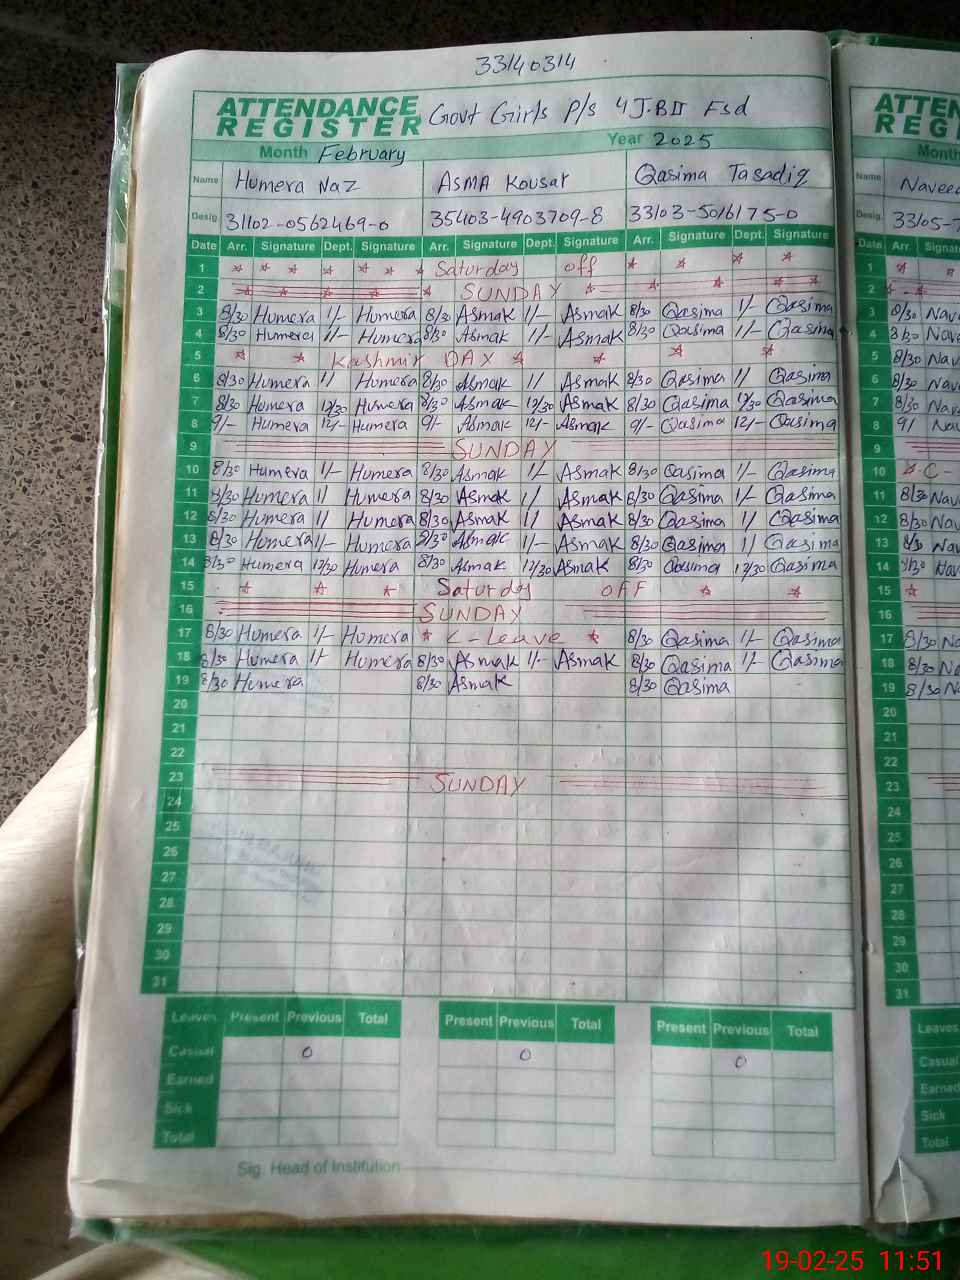 33140314
ATTENDANCE REGISTER Govt Girls P/s 4 J.B II Fsd
Month February Year 2025
Name Humera Naz ASMA Kousar Qasima Tasadiq
Desig. 31102-0562469-0 35403-4903709-8 33103-5016175-0
Date Arr. Signature Dept. Signature Arr. Signature Dept. Signature Arr. Signature Dept. Signature
1 Saturday off
2 SUNDAY
3 8/30 Humera 1/- Humera 8/30 Asmak 1/- Asmak 8/30 Qasima 1/- Qasima
4 8/30 Humera 1/- Humera 8/30 Asmak 1/- Asmak 8/30 Qasima 1/- Qasima
5 Kashmir DAY
6 8/30 Humera 1/ Humera 8/30 Asmak 1/ Asmak 8/30 Qasima 1/ Qasima
7 8/30 Humera 12/30 Humera 8/30 Asmak 12/30 Asmak 8/30 Qasima 12/30 Qasima
8 9/- Humera 12/- Humera 9/- Asmak 12/- Asmak 9/- Qasima 12/- Qasima
9 SUNDAY
10 8/30 Humera 1/- Humera 8/30 Asmak 1/- Asmak 8/30 Qasima 1/- Qasima
11 8/30 Humera 1/ Humera 8/30 Asmak 1/ Asmak 8/30 Qasima 1/- Qasima
12 8/30 Humera 1/ Humera 8/30 Asmak 1/ Asmak 8/30 Qasima 1/ Qasima
13 8/30 Humera 1/- Humera 8/30 Asmak 1/- Asmak 8/30 Qasima 1/ Qasima
14 8/30 Humera 12/30 Humera 8/30 Asmak 12/30 Asmak 8/30 Qasima 12/30 Qasima
15 Saturday OFF
16 SUNDAY
17 8/30 Humera 1/- Humera C-Leave 8/30 Qasima 1/- Qasima
18 8/30 Humera 1/- Humera 8/30 Asmak 1/- Asmak 8/30 Qasima 1/- Qasima
19 8/30 Humera 8/30 Asmak 8/30 Qasima
20
21
22
23 SUNDAY
24
25
26
27
28
29
30
31
Leaves Present Previous Total Present Previous Total Present Previous Total
Casual 0 0 0
Earned
Sick
Total
Sig. Head of Institution
ATTEN
REG
Month
Name Naveed
Desig. 33105-7
Date Arr. Signat
1
2
3 8/30 Nav
4 8/30 Nav
5 8/30 Nav
6 8/30 Nav
7 8/30 Nav
8 9/ Nav
9
10 C-
11 8/30 Nav
12 8/30 Nav
13 8/30 Nav
14 8/30 Nav
15
16
17 8/30 Na
18 8/30 Na
19 8/30 Na
20
21
22
23
24
25
26
27
28
29
30
31
Leaves
Casual
Earned
Sick
Total
19-02-25 11:51